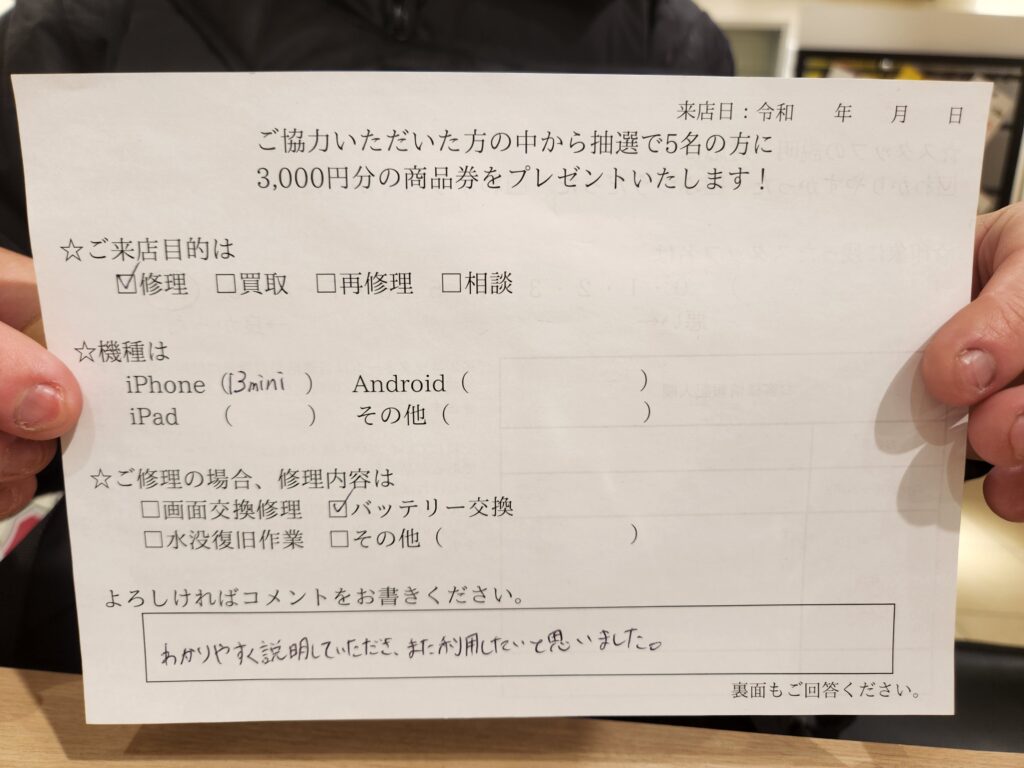 来店日：令和　年　月　日
ご協力いただいた方の中から抽選で5名の方に
3,000円分の商品券をプレゼントいたします！
☆ご来店目的は
☑修理　□買取　□再修理　□相談
☆機種は
iPhone（13mini　）　Android（　　　　　）
iPad　（　　　）　その他（　　　　　）
☆ご修理の場合、修理内容は
□画面交換修理　☑バッテリー交換
□水没復旧作業　□その他（　　　　　）
よろしければコメントをお書きください。
わかりやすく説明していただき、また利用したいと思いました。
裏面もご回答ください。